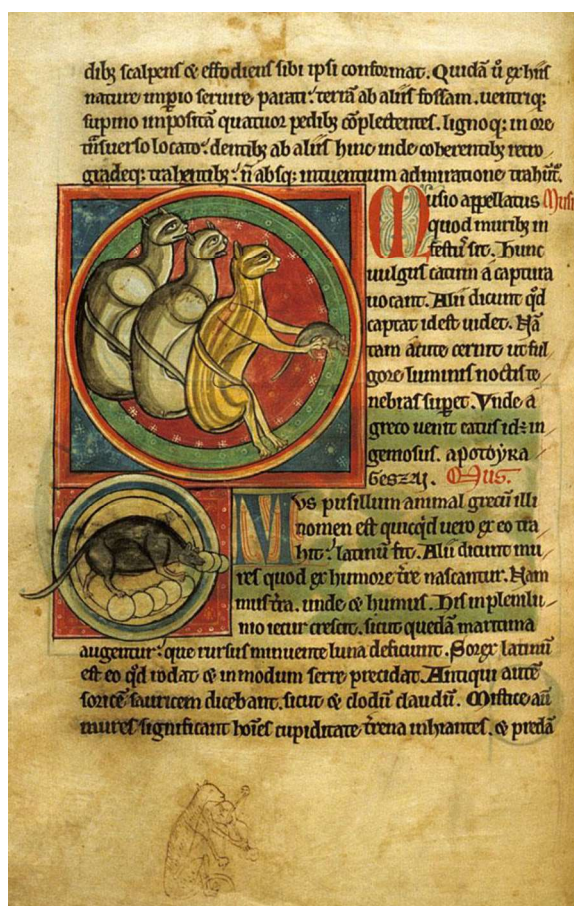 dibꝫ scalpens & effodiens sibi ipsi conformat. Quidā ū ex hiis
nature imp̄io seruire parati. terrā ab aliis fossam. uentriqꝫ
supino impositā quatuor pedibꝫ cōplectentes. lignoqꝫ in ore
tͣnsuerso locato. dentibꝫ ab aliis hinc inde coherentibꝫ retro
gradeqꝫ trahentibꝫ. n̄ absqꝫ intuentium admiratione trahūt.
Musio appellatus Musi
quod muribꝫ in
festus sit. Hunc
uulgus catum a captura
uocant. Alii dicunt qd̓
captat id est uidet. Nā
tam acute cernit ut ful
gore luminis noctis te
nebras suꝑet. Vnde a
greco uenit catus id ÷ in
geniosus.
Mus.
Mus pusillum animal grecū illi
nomen est quicqͥd uero ex eo tra
hit. latinū fit. Alii dicunt mu
res quod ex humore t̄re nascantur. Nam
mus t̄ra. unde & humus. His in plenilu
nio iecur crescit. sicut quedā maritima
augentur. que rursus minuente luna deficiunt. Sorex latinū
est eo qd̓ rodat & in modum serre precidat. Antiqui autē
soricē sauricem dicebant. sicut & clodū claudū. Mistice aū
mures significant hoīes cupiditate t̄rena inhiantes. & predā